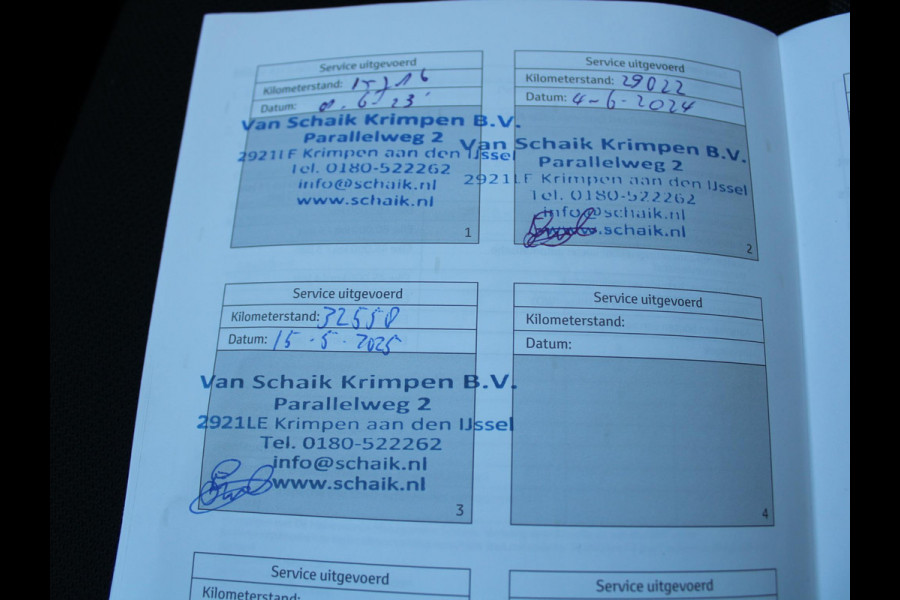 Service uitgevoerd
Kilometerstand:
Datum:
Van Schaik Krimpen B.V.
Parallelweg 2
2921LE Krimpen aan den IJssel
Tel. 0180-522262
info@schaik.nl
www.schaik.nl
1
Service uitgevoerd
Kilometerstand: 29022
Datum: 4-6-2024
Van Schaik Krimpen B.V.
Parallelweg 2
2921LE Krimpen aan den IJssel
Tel. 0180-522262
info@schaik.nl
www.schaik.nl
2
Service uitgevoerd
Kilometerstand: 32558
Datum: 15-5-2025
Van Schaik Krimpen B.V.
Parallelweg 2
2921LE Krimpen aan den IJssel
Tel. 0180-522262
info@schaik.nl
www.schaik.nl
3
Service uitgevoerd
Kilometerstand:
Datum:
4
Service uitgevoerd
Kilometerstand:
Service uitgevoerd